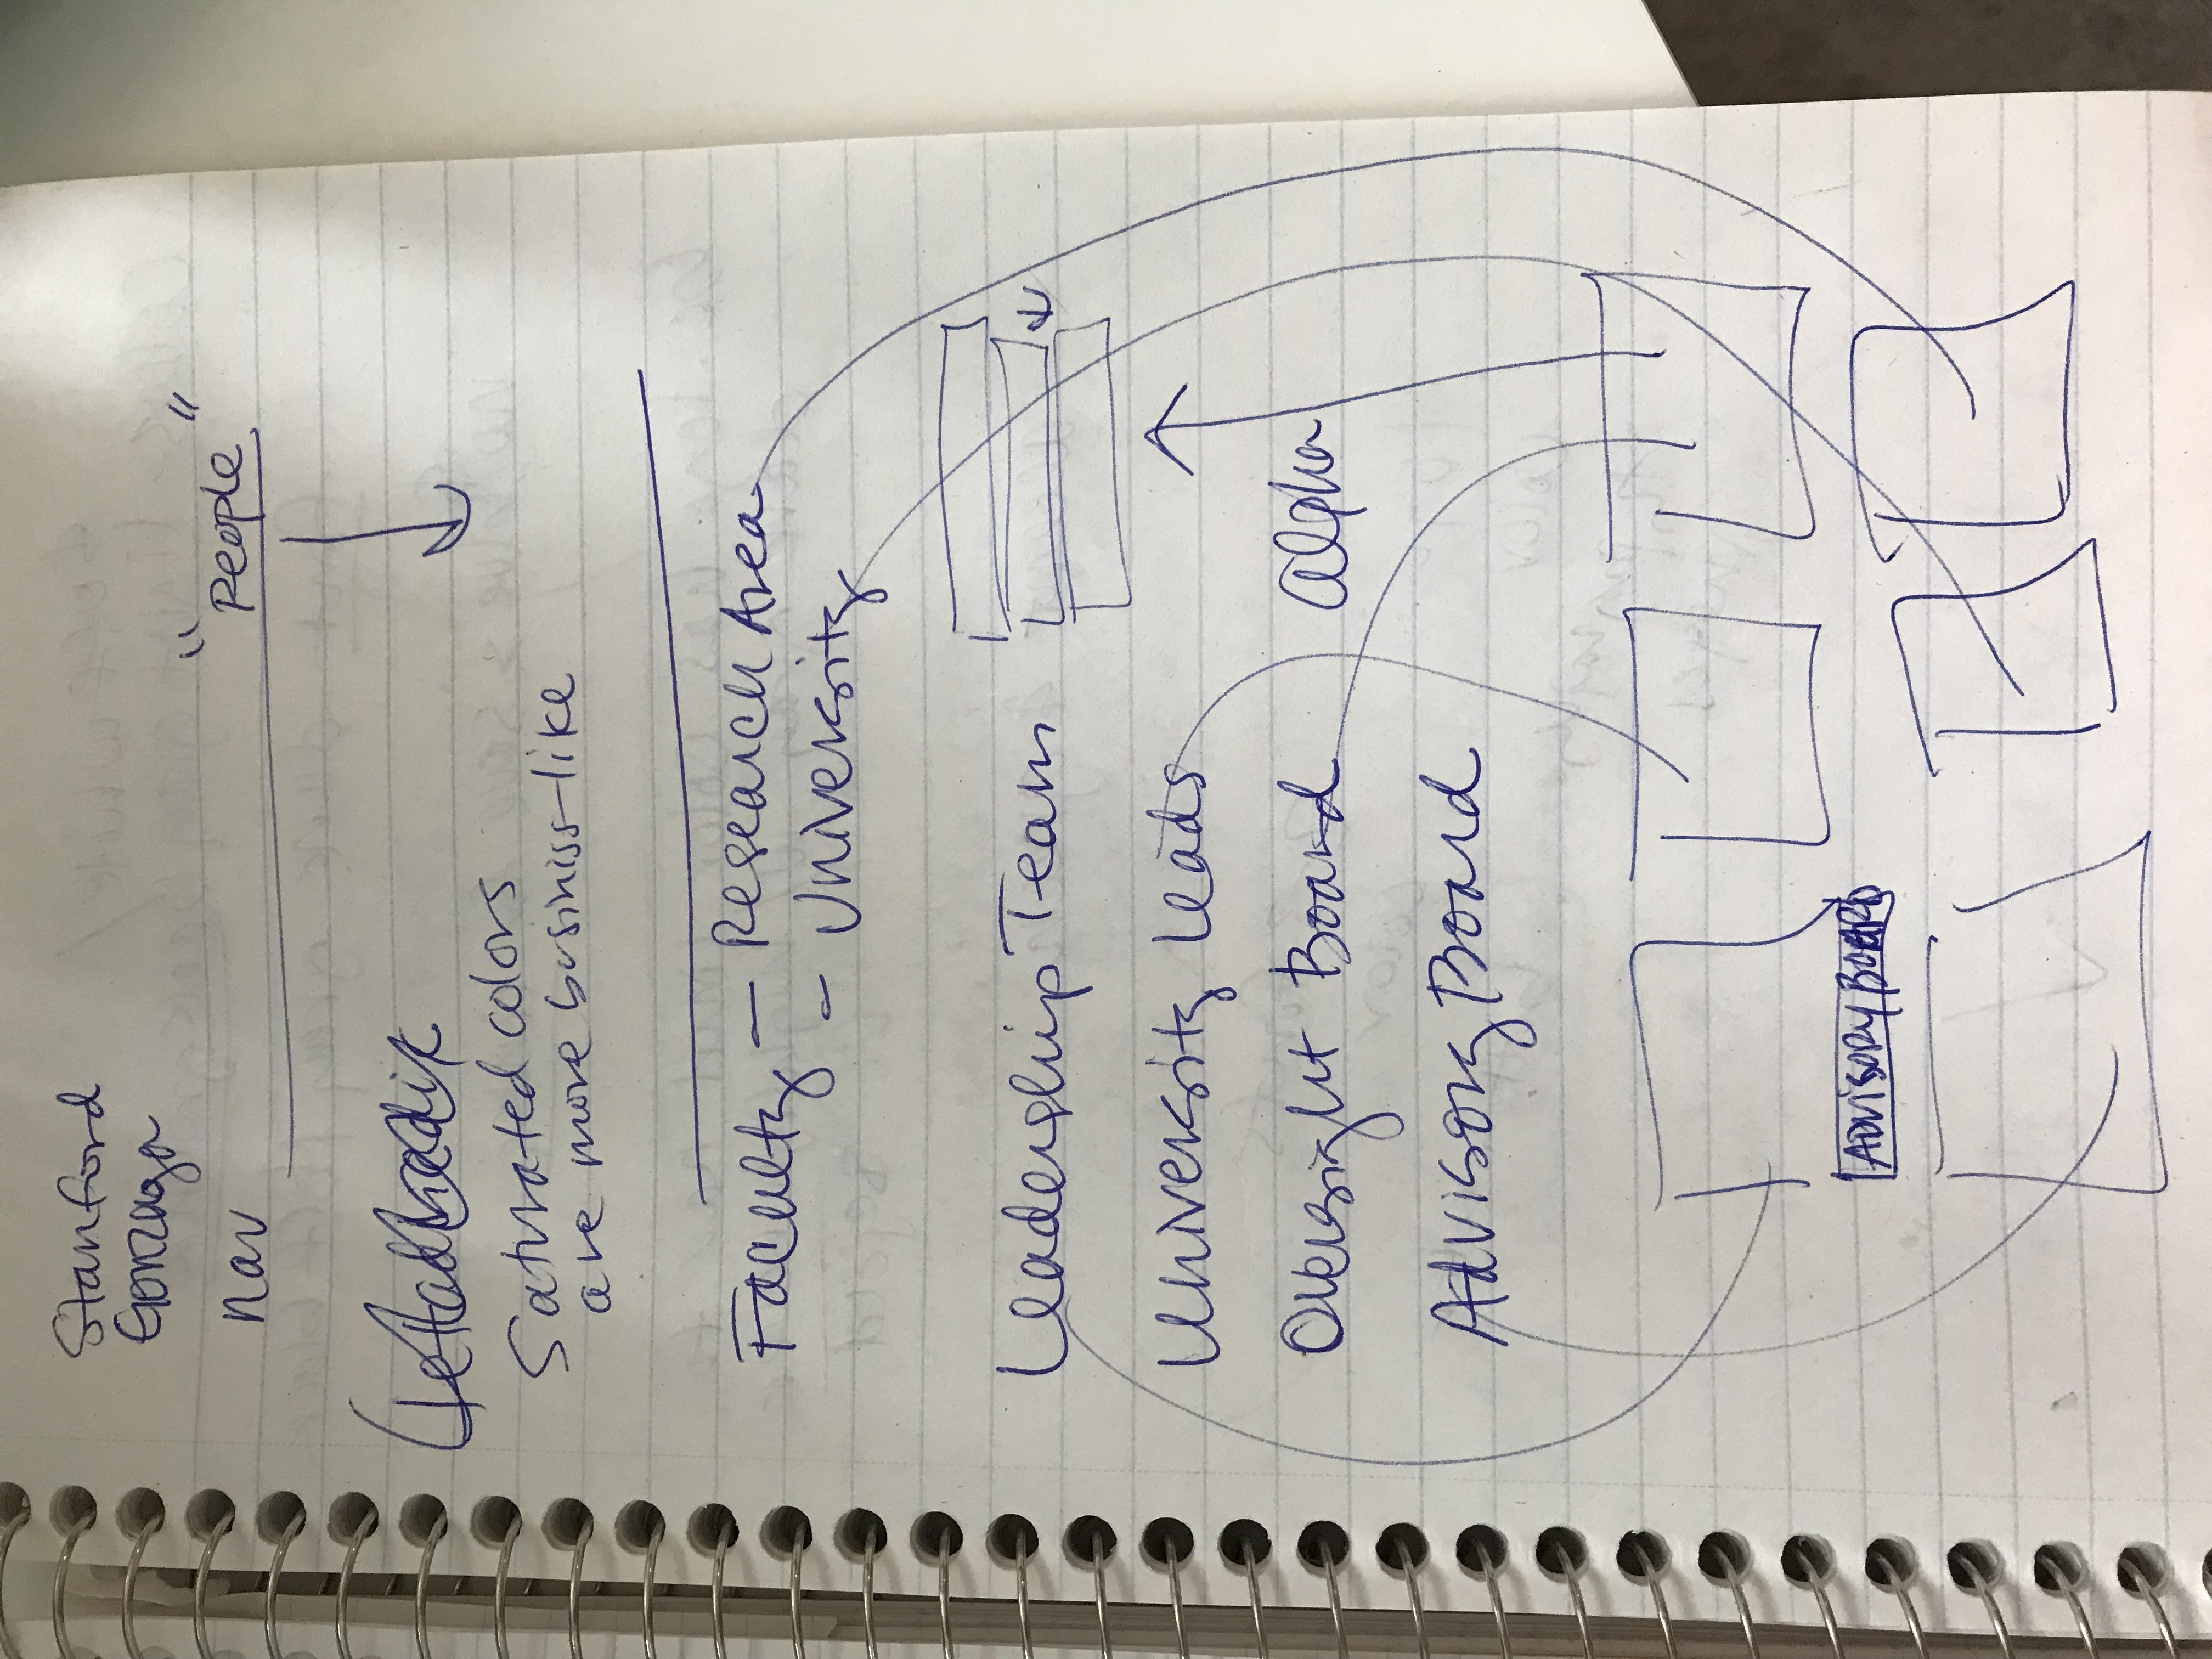 Stanford
Gonzaga
nav
"People"
Saturated colors
are more businiss-like
Faculty - Research Area
- University
Leadership Team
University Leads
Oversight Board
alpha
Advisory Board
ADVISORY BOARD